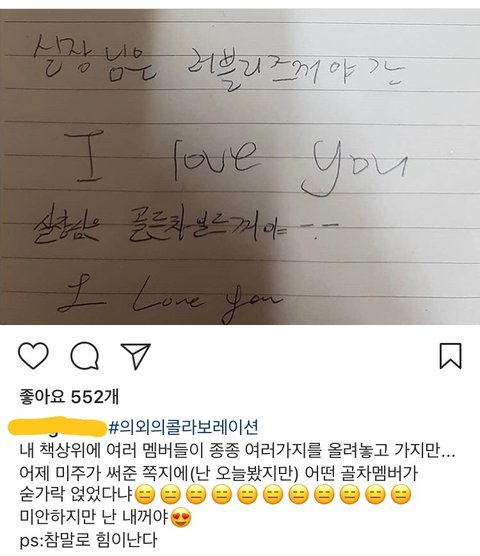 실장님은 러블리즈꺼야
I love you
실장님은 골든차일드꺼야 --
I Love you
좋아요 552개
#의외의콜라보레이션
내 책상위에 여러 멤버들이 종종 여러가지를 올려놓고 가지만...
어제 미주가 써준 쪽지에(난 오늘봤지만) 어떤 골차멤버가
숟가락 얹었다냐😑😑😑😑😑😑😑😑😑😑😑
미안하지만 난 내꺼야😍
ps:참말로 힘이난다